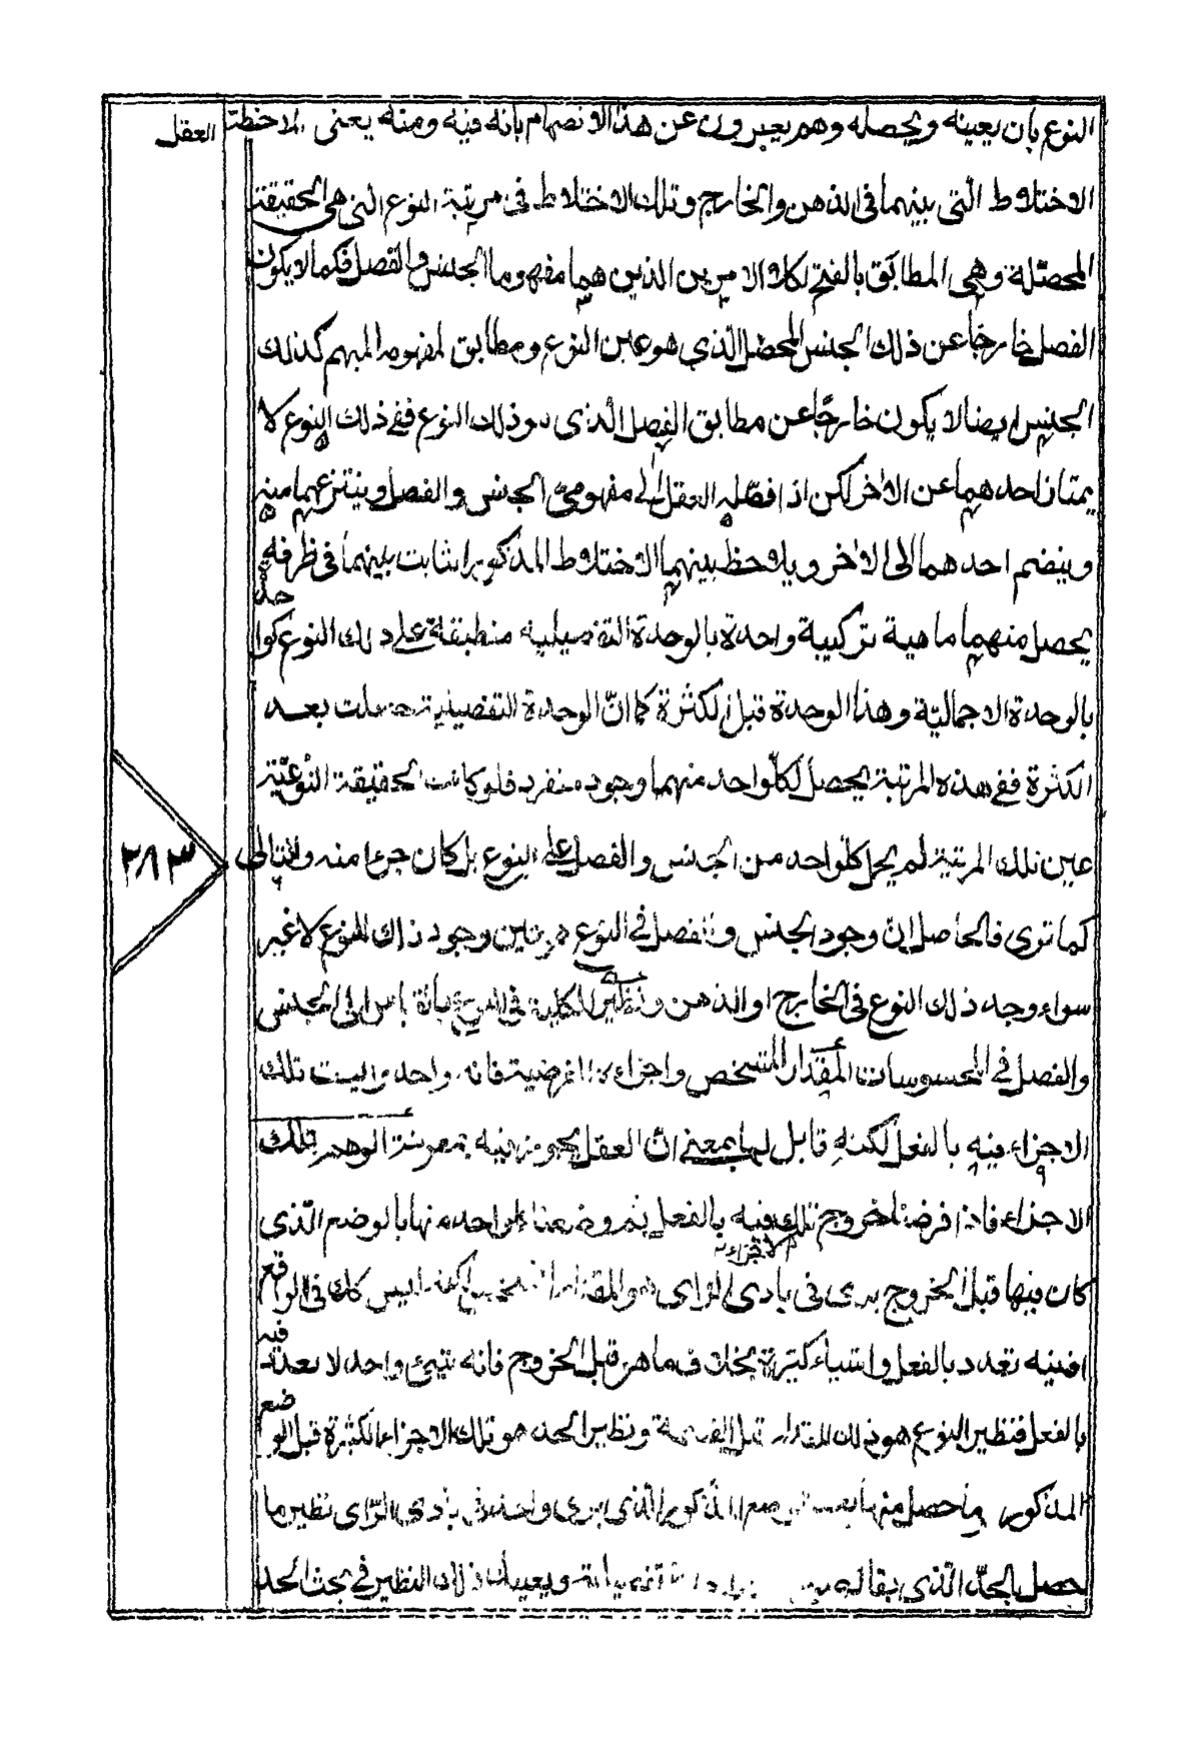 النوع بان يعينه ويحصله وهم يعبرون عن هذا الانضمام بانه فيه ومنه يعنى الاحظت العقل
الاختلاط الّتى بينهما فى الذهن والخارج وتلك الاختلاط فى مرتبة النوع التى هى الحقيقة
المحصّلة وهى المطابَق بالفتح لكلا الامرين الذين هما مفهوما الجنس والفصل فكما لا يكون
الفصل خارجًا عن ذلك الجنس المحصّل الّذى هو عين النوع ومطابق لمفهومه المبهم كذلك
الجنس ايضا لا يكون خارجًا عن مطابق الفصل الّذى هو ذلك النوع ففى ذلك النوع لا
يمتاز احدهما عن الآخر لكن اذا فصّله العقل الى مفهومى الجنس والفصل وينتزعهما منه
وينضم احدهما الى الآخر ويلاحظ بينهما الاختلاط المذكور الثابت بينهما فى ظرفه
يحصل منهما ماهية تركيبية واحدة بالوحدة التفصيلية منطبقة على ذلك النوع الواحد
بالوحدة الاجماليّة وهذا الوحدة قبل الكثرة كما انّ الوحدة التفصيلية حصلت بعد
الكثرة ففى هذه المرتبة يحصل لكلّ واحد منهما وجود منفرد فلو كانت الحقيقة النوعيّة
عين تلك المرتبة لم يحمل كلّ واحد من الجنس والفصل على النوع بل كان جزءا منه والتالى
كما ترى فالحاصل انّ وجود الجنس والفصل فى النوع هو عين وجود ذلك النوع لا غير
سواء وجد ذلك النوع فى الخارج او الذهن ونظير الكلية فى النوع بالقياس الى الجنس
والفصل فى المحسوسات المقدار المتشخص واجزاءه الفرضية فانه واحد وليست تلك
الاجزاء فيه بالفعل لكنه قابل لها بمعنى انّ العقل يجوز فيه بمعونة الوهم تلك
الاجزاء فاذا فرضنا خروج تلك الاجزاء فيه بالفعل ثم وضعنا كل واحد منها بالوضع الّذى
كان فيها قبل الخروج يرى فى بادى الراى هو المقدار لكنه ليس كك فى الواقع
اذ فيه تعدد بالفعل واشياء كثيرة بخلاف ما هو قبل الخروج فانه شىء واحد لا تعدد فيه
بالفعل فنظير النوع هو ذلك المقدار قبل القسمة ونظير الحد هو تلك الاجزاء الكثيرة قبل الوضع
المذكور وما حصل منها بعد الوضع المذكور الّذى يرى واحدا فى بادى الرّاى نظير ما
حصل الحدّ الّذى يقال ويعيبك ذلك النظير فى بحث الحد
٢٨٣